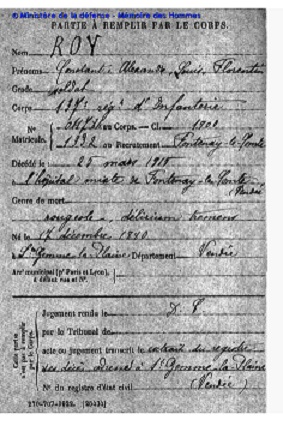 © Ministère de la défense - Mémoire des Hommes
PARTIE À REMPLIR PAR LE CORPS.
Nom ROY
Prénoms Constant Alexandre Louis Florentin
Grade soldat
Corps 137e rég. d'Infanterie
No au Corps. — Cl. 1900
Matricule. 1332 au Recrutement Fontenay-le-Comte
Décédé le 25 mars 1918
à l'hôpital mixte de Fontenay-le-Comte
(Vendée)
Genre de mort
rougeole - délirium tremens
Né le 17 décembre 1880
à Ste Gemme-la-Plaine Département Vendée
Arrt municipal (pr Paris et Lyon),
à défaut rue et No.
Cette partie
n'est pas à remplir
par le Corps.
Jugement rendu le
par le Tribunal de
acte ou jugement transcrit le extrait du registre
des décès adressé à Ste Gemme-la-Plaine
(Vendée)
No du registre d'état civil